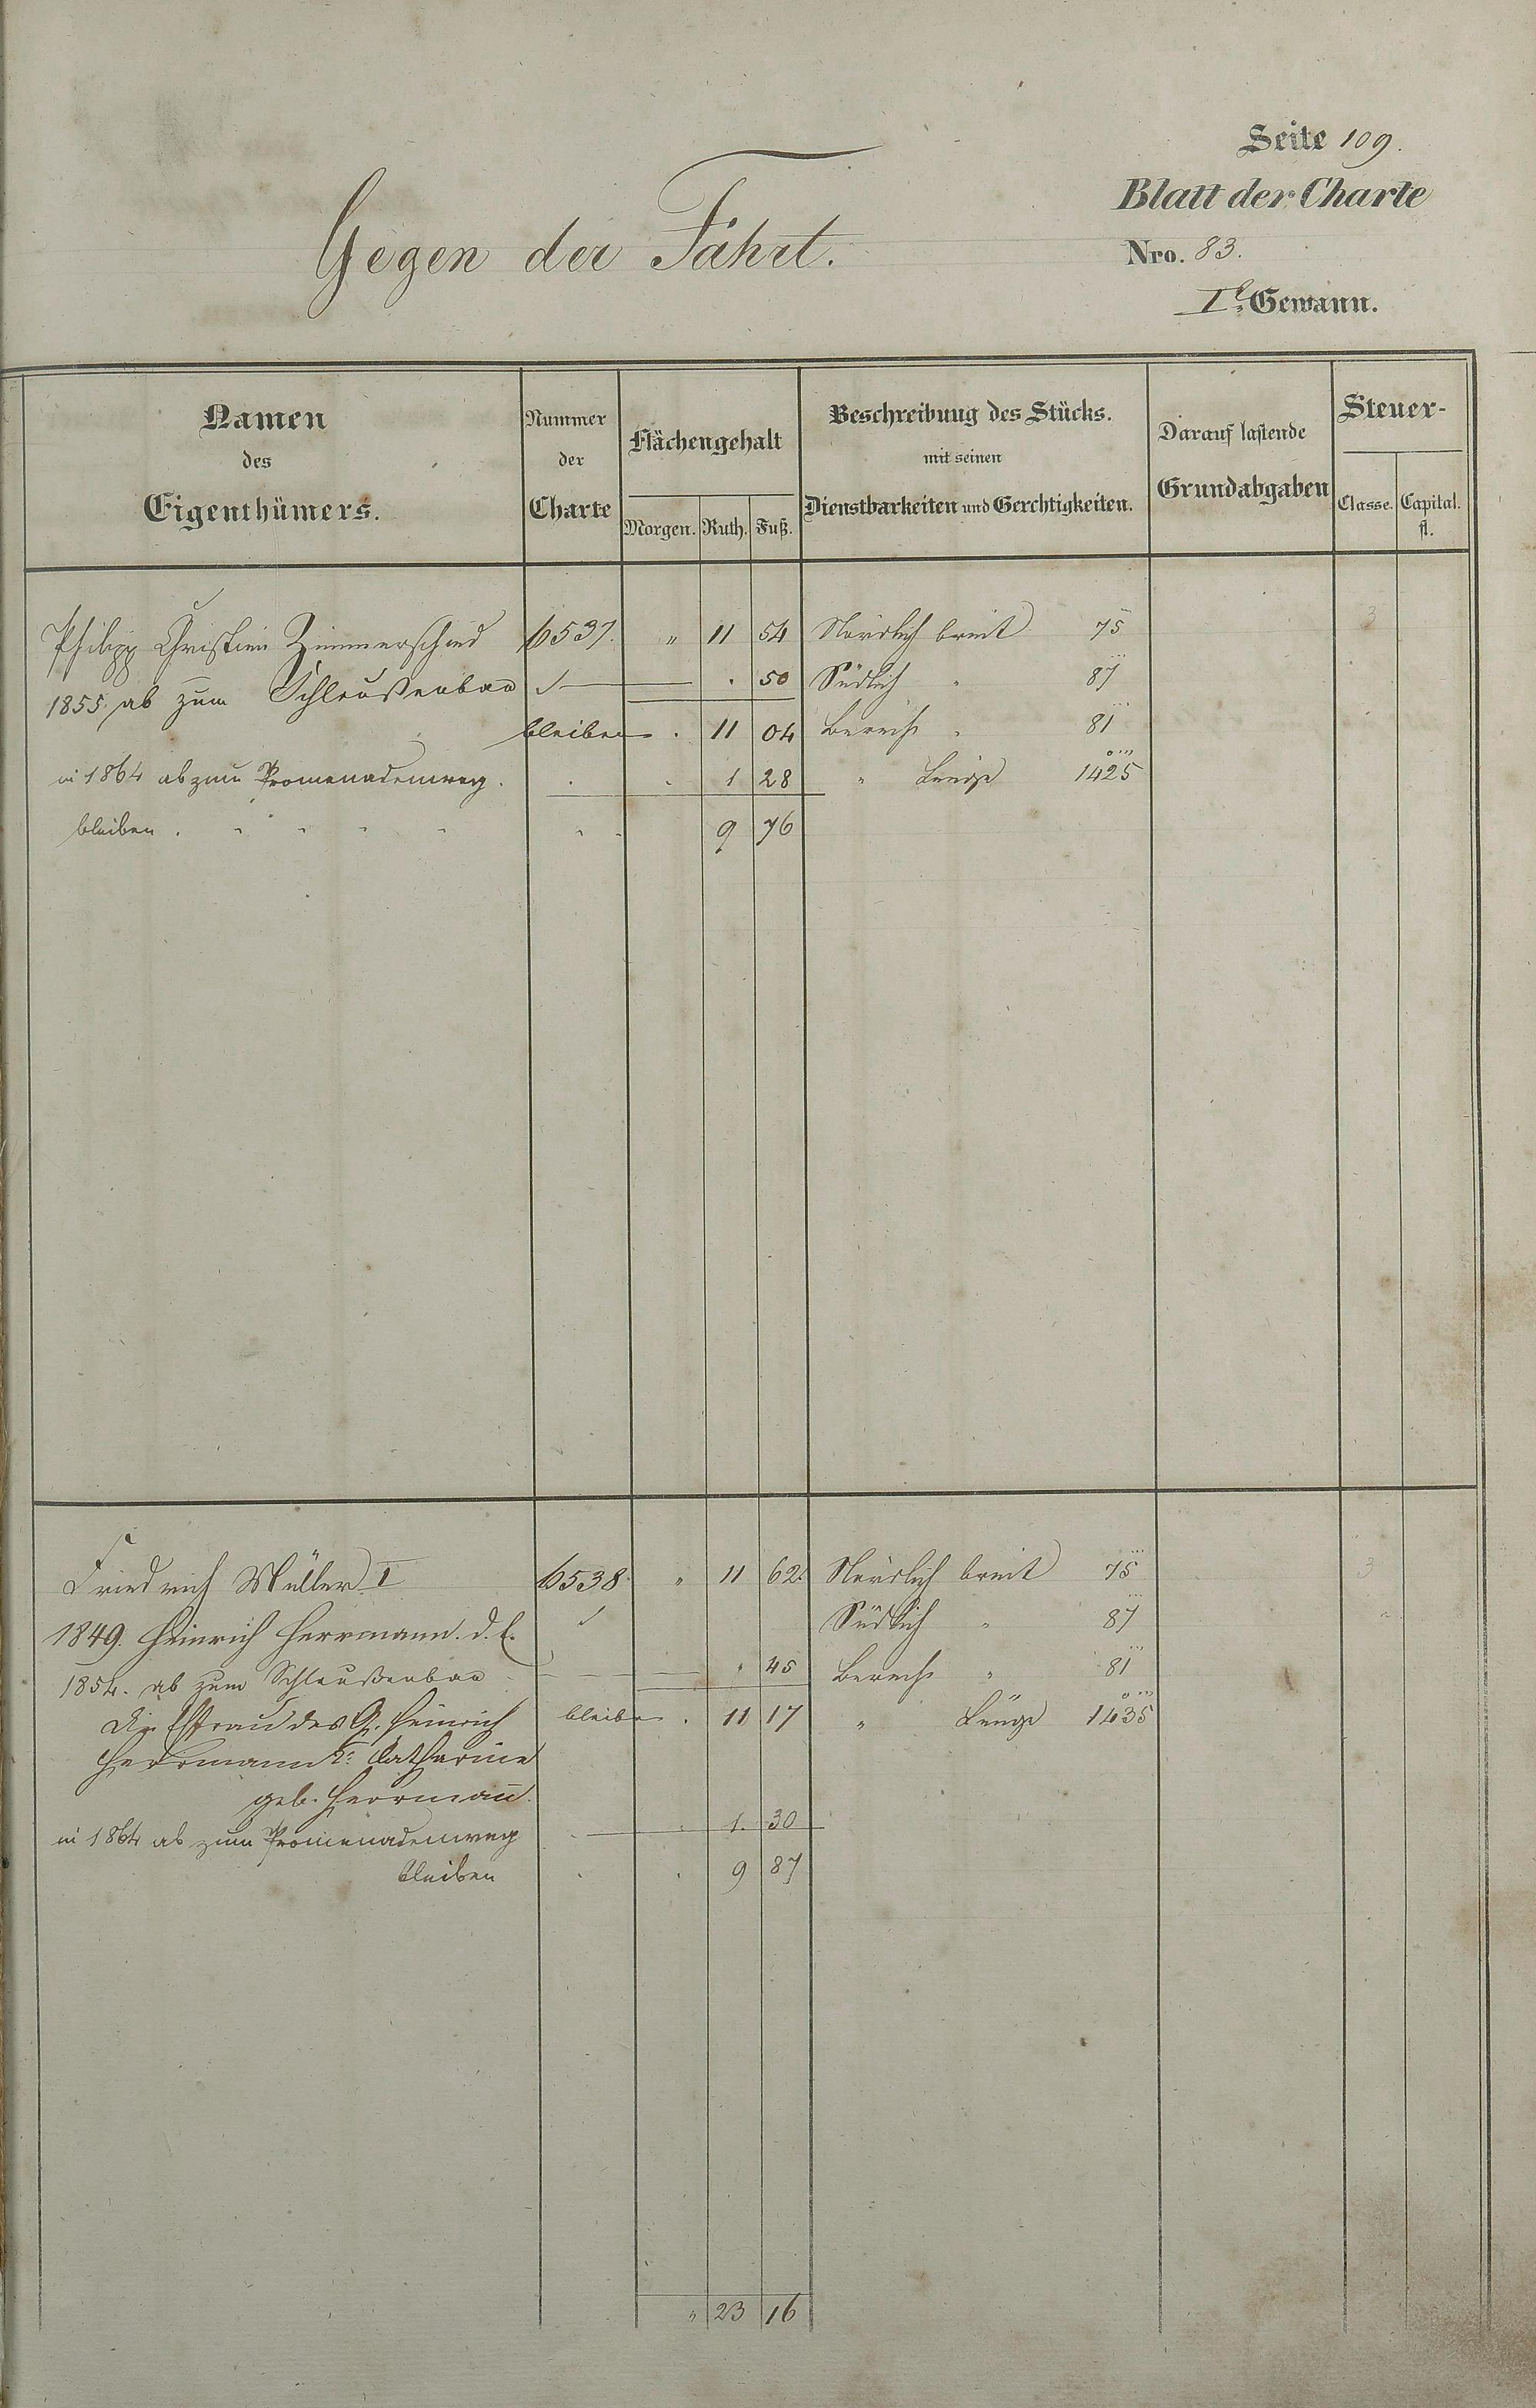 Seite 109.
Blatt der Charte
Gegen der Fährt.
Nro. 83.
I.te Gewann.
Namen des Eigenthümers.
Nummer der Charte
Flächengehalt
Morgen. Ruth. Fuß.
Beschreibung des Stücks.
mit seinen
Dienstbarkeiten und Gerechtigkeiten.
Darauf lastende
Grundabgaben
Steuer-
Classe. Capital. fl.
Philipp Christian Zimmerschied 6537. " 11 54 Nördlich breit 75 3
1855. ab zum Schleußenbau . 50 Südlich " 87
bleiben . 11 04 Berech. " 81
in 1864 ab zum Promenadenweg . . . 1 28 " Länge 1425
bleiben . " " " " " " 9 76
Friedrich Müller I 6538. " 11 62. Nördlich breit 75 3
1849. Heinrich Herrmann. d. E. Südlich " 87
1854. ab zum Schleußenbau " 45 Berech. " 81
Die Ehfrau des G. Heinrich bleiben . 11 17 " Länge 1435
Herrmann Catharine
geb. Herrmann.
in 1864 ab zum Promenadenweg 1. 30
bleiben . . 9 87
" 23 16